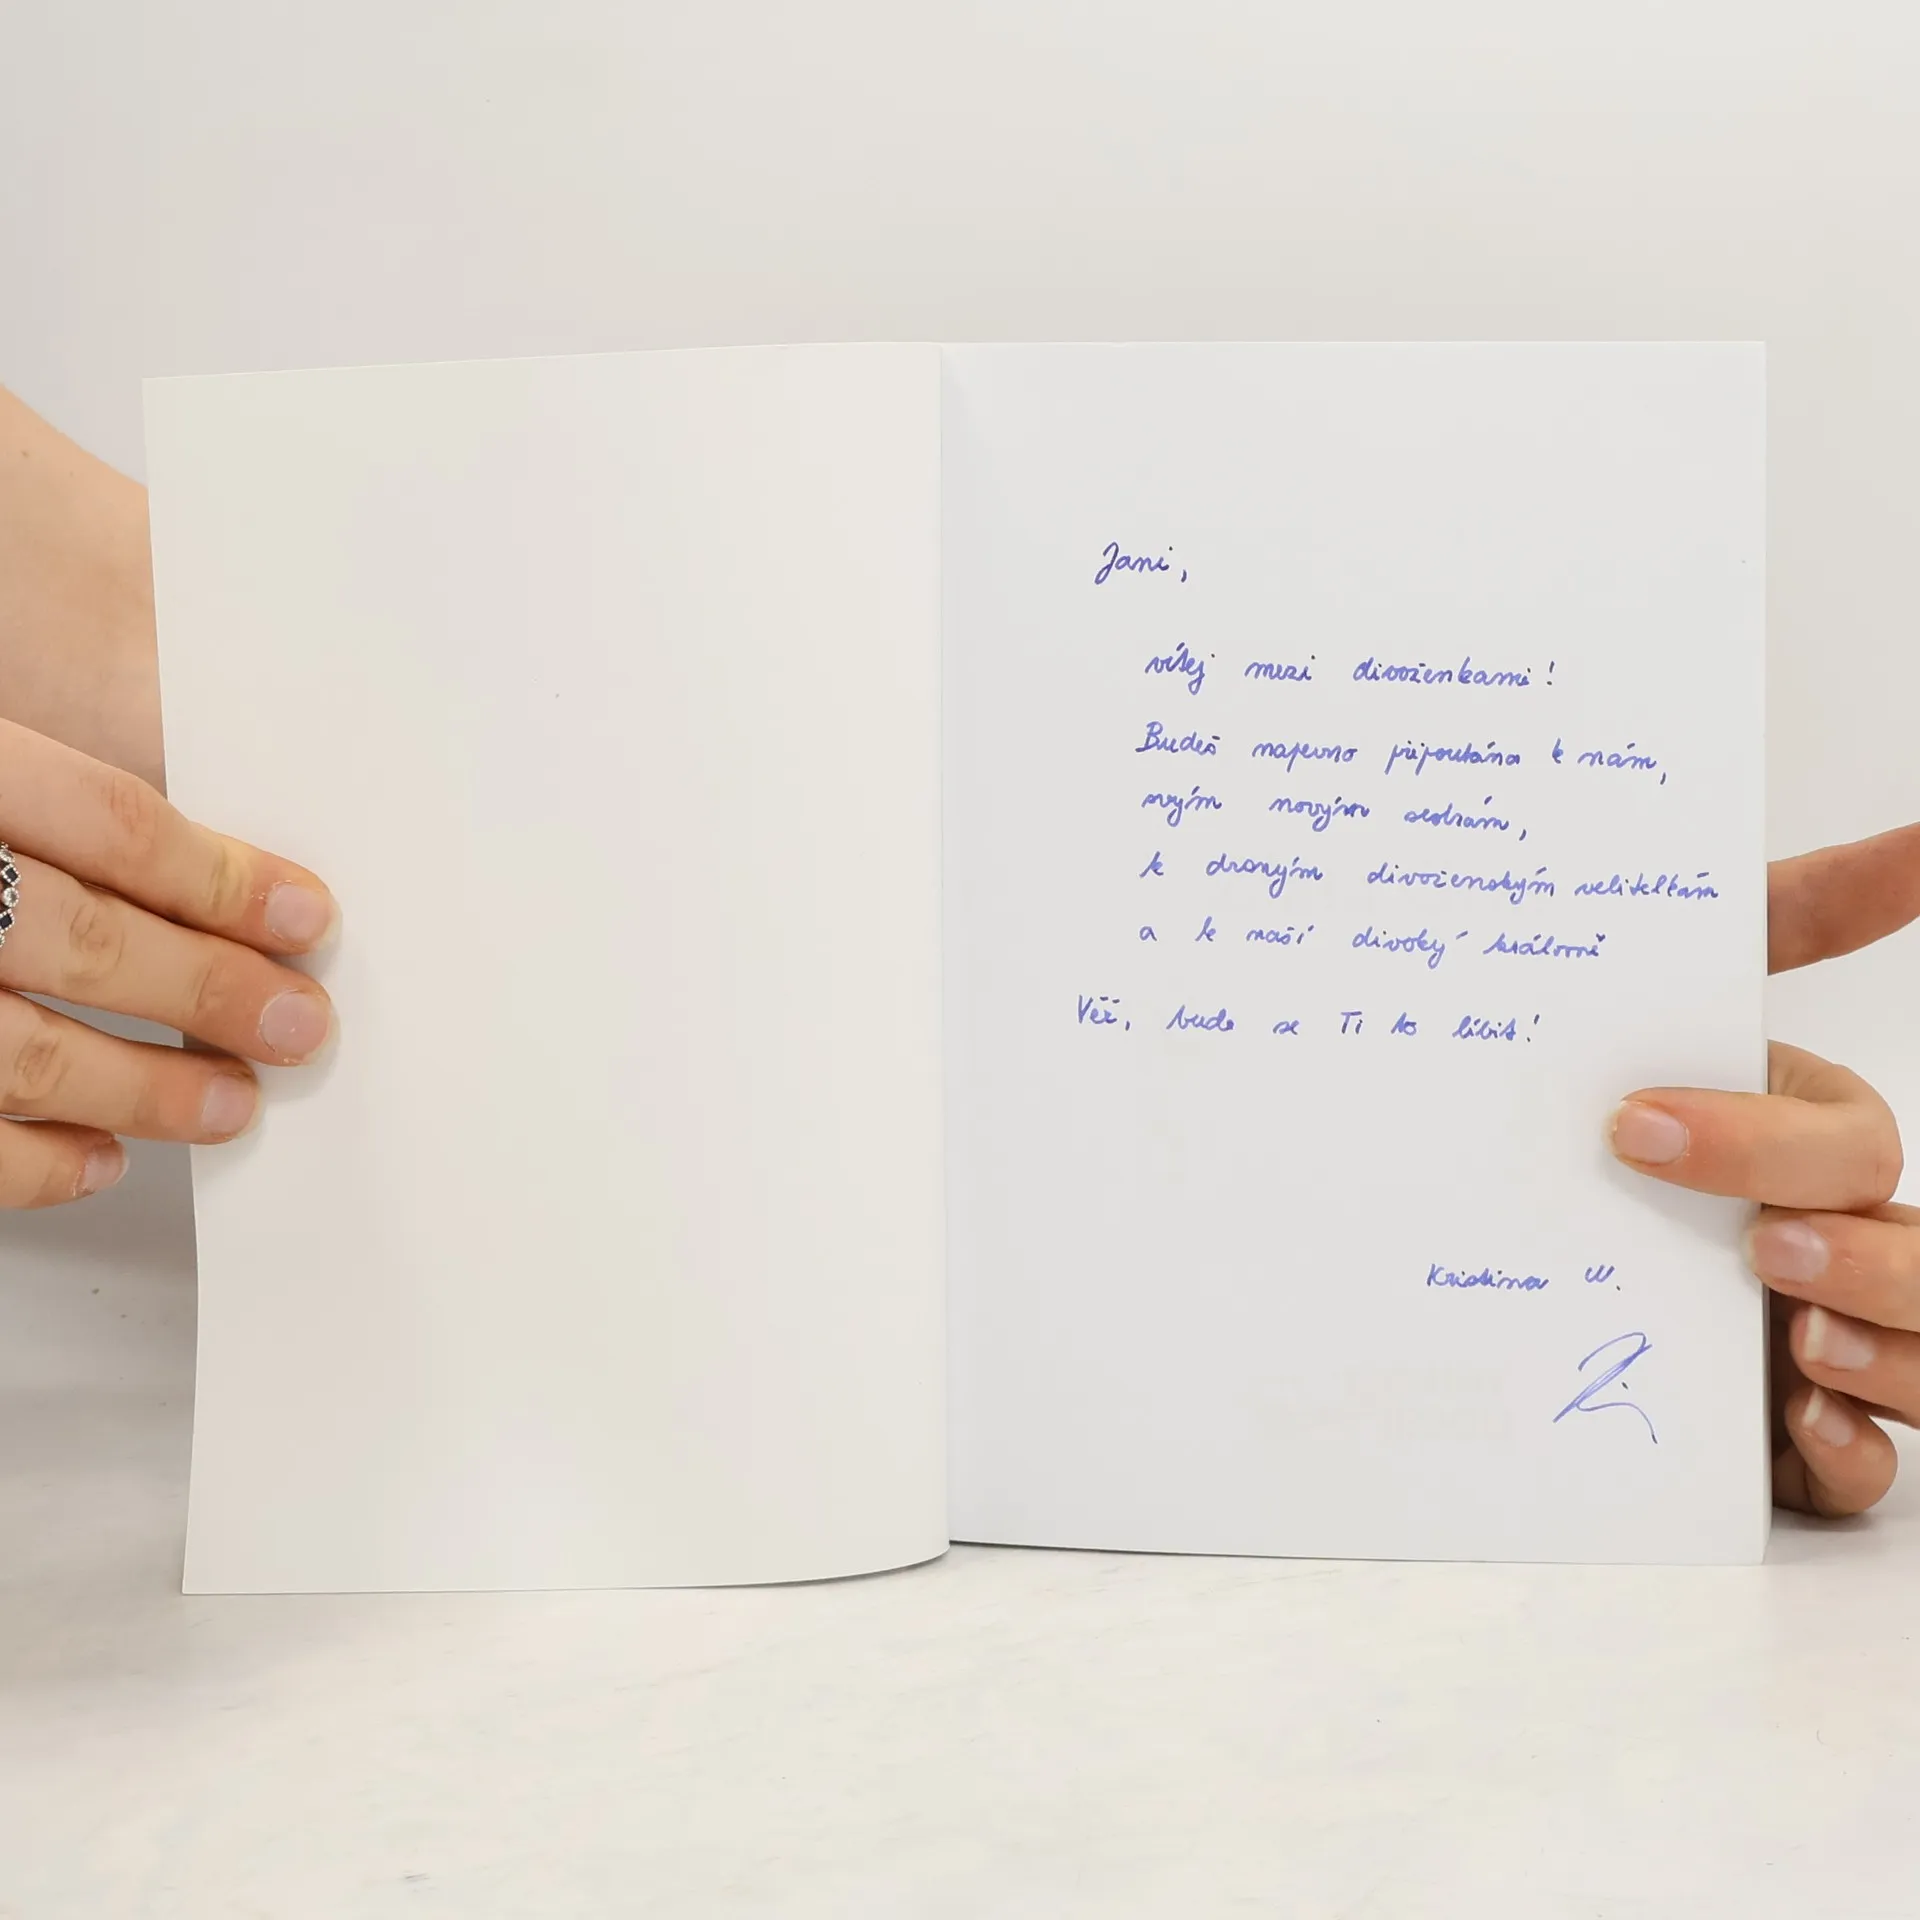 Jani,
vítej mezi divoženkami!
Budeš napevno připoutána k nám,
svým novým sestrám,
k drsným divoženským velitelkám
a k naší divoký královně
Věř, bude se Ti to líbit!
Kristina W.